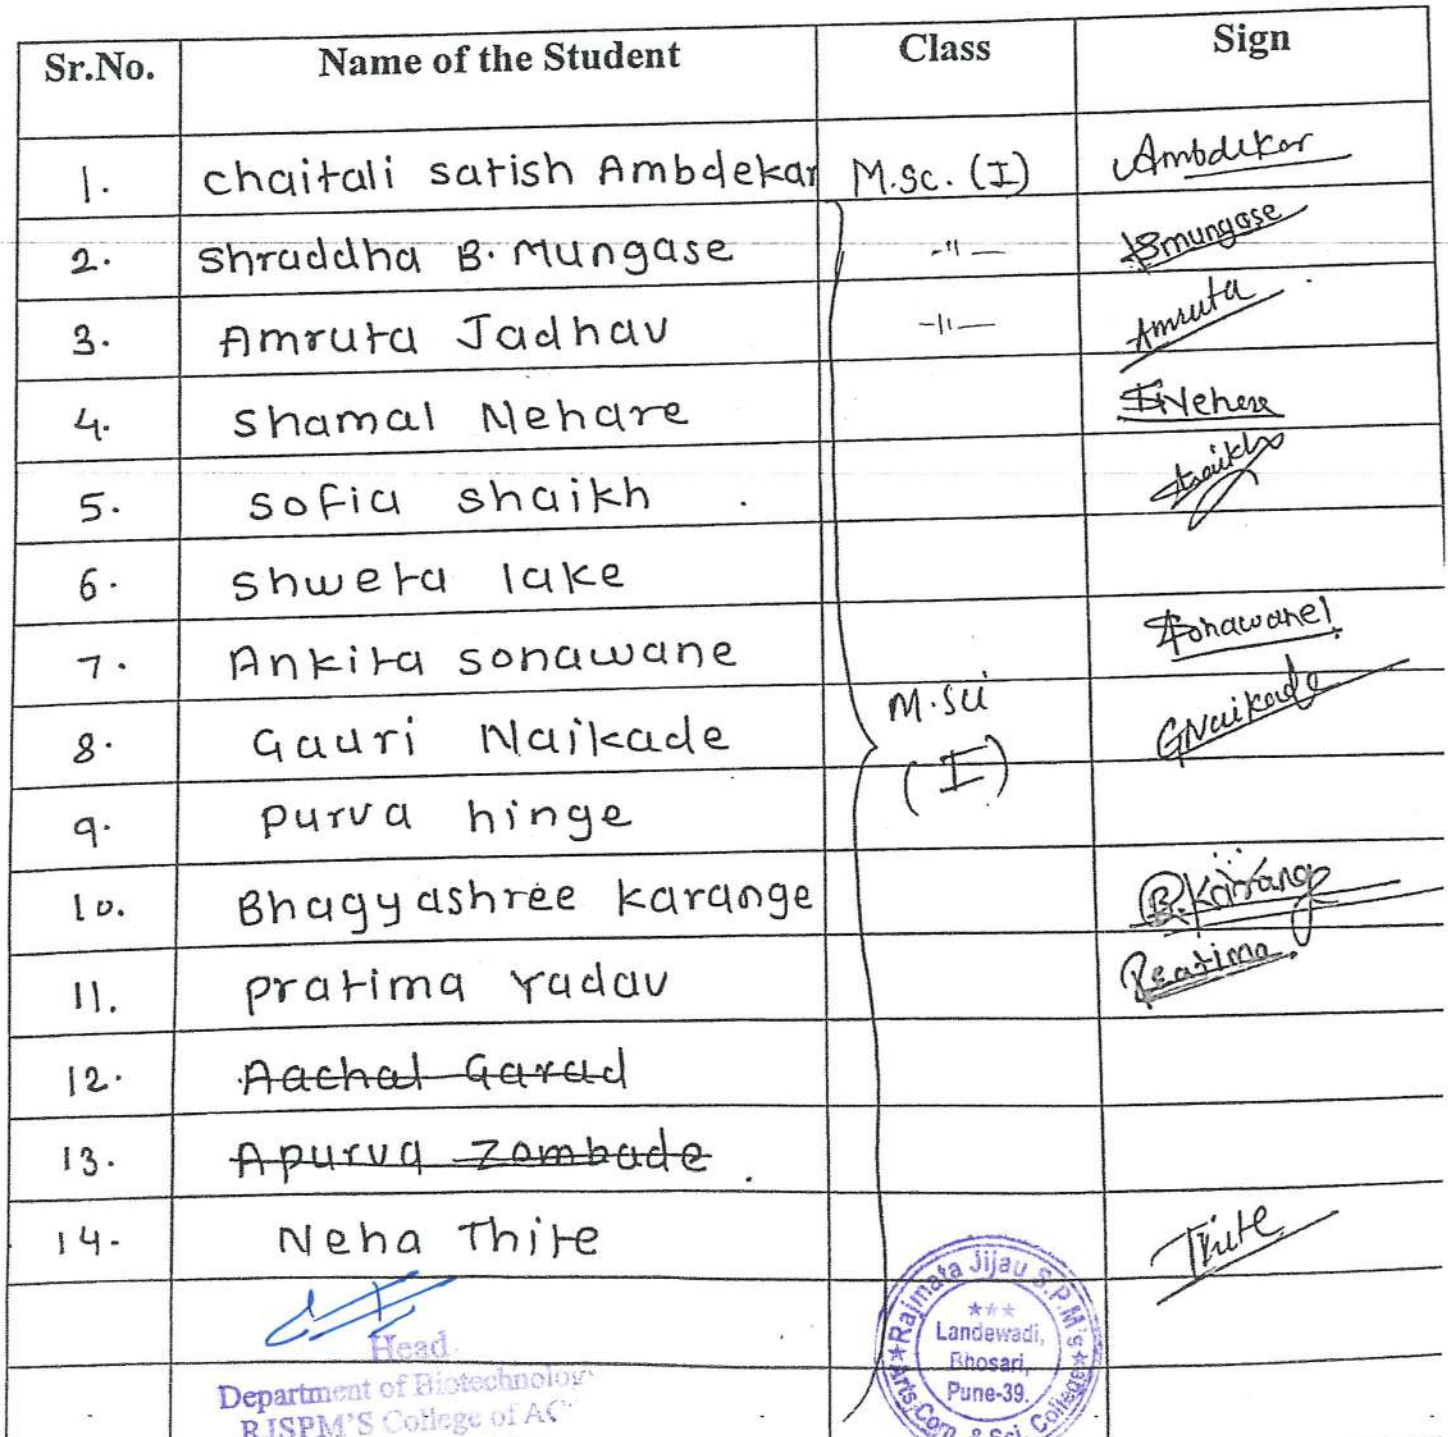 Sr.No. Name of the Student Class Sign
1. chaitali satish Ambdekar M.sc. (I) Ambdekar
2. shraddha B. Mungase -"- Bmungase
3. Amruta Jadhav -"- Amruta
4. shamal Nehare SNehere
5. sofia shaikh . Shaikh
6. shweta lake
7. Ankita sonawane Sonawane
8. Gauri Naikade M.sci GNaikade
(I)
9. purva hinge
10. Bhagyashree karange B.Karange
11. pratima Yadav Pratima
12. Aachal Garad
13. Apurva Zombade
14. Neha Thite Thite
Head
Department of Biotechnolog
RJSPM'S College of AC
Rajmata Jijau S.P.M's
Landewadi,
Bhosari,
Pune-39.
Arts, Com. & Sci. College